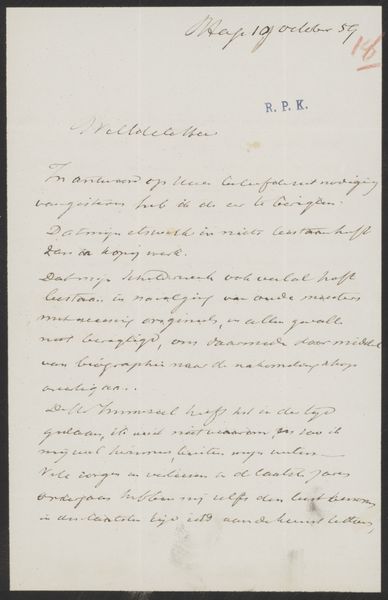 Hage 19 October 59
16
R. P. K.
WelEdele Heer
In antwoord op Uwe beleefde uitnodiging
van gisteren heb ik de eer te berigten.
Dat mijn etswerk in niets bestaan heeft
dan in kopij werk.
Dat mijn schilderwerk ook veelal heeft
bestaan in navolging van oude meesters
met weinig origineels, in allen gevalle
niet, om daarmede door middel
van biographie naar de nakomelingschap
over te gaan..
De Hr Immerzeel heeft het in der tijd
gedaan, ik weet niet waarom, en zoo ik
mij wel herinner, buiten mijn weten
Vele zorgen en in de laatste jaren
hebben mij zelfs den lust benomen
in den laatsten tijd iets aan de kunst te doen,